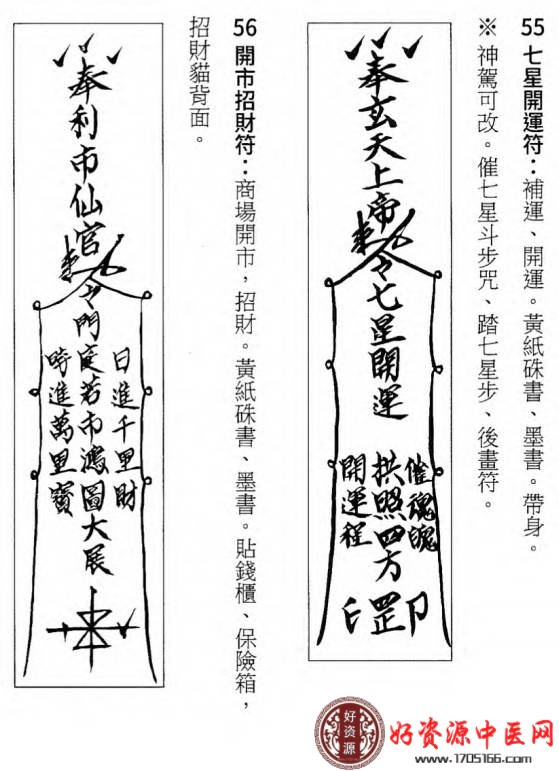 55 七星開運符：補運、開運。黃紙硃書、墨書。帶身。
※ 神駕可改。催七星斗步咒、踏七星步、後畫符。
奉玄天上帝敕令七星開運
催魂魄
拱照四方
開運程
罡印
56 開市招財符：商場開市，招財。黃紙硃書、墨書。貼錢櫃、保險箱，
招財貓背面。
奉利市仙官敕令門庭若市鴻圖大展
日進千里財
時進萬里寶
好資源
好资源中医网
www.1705166.com